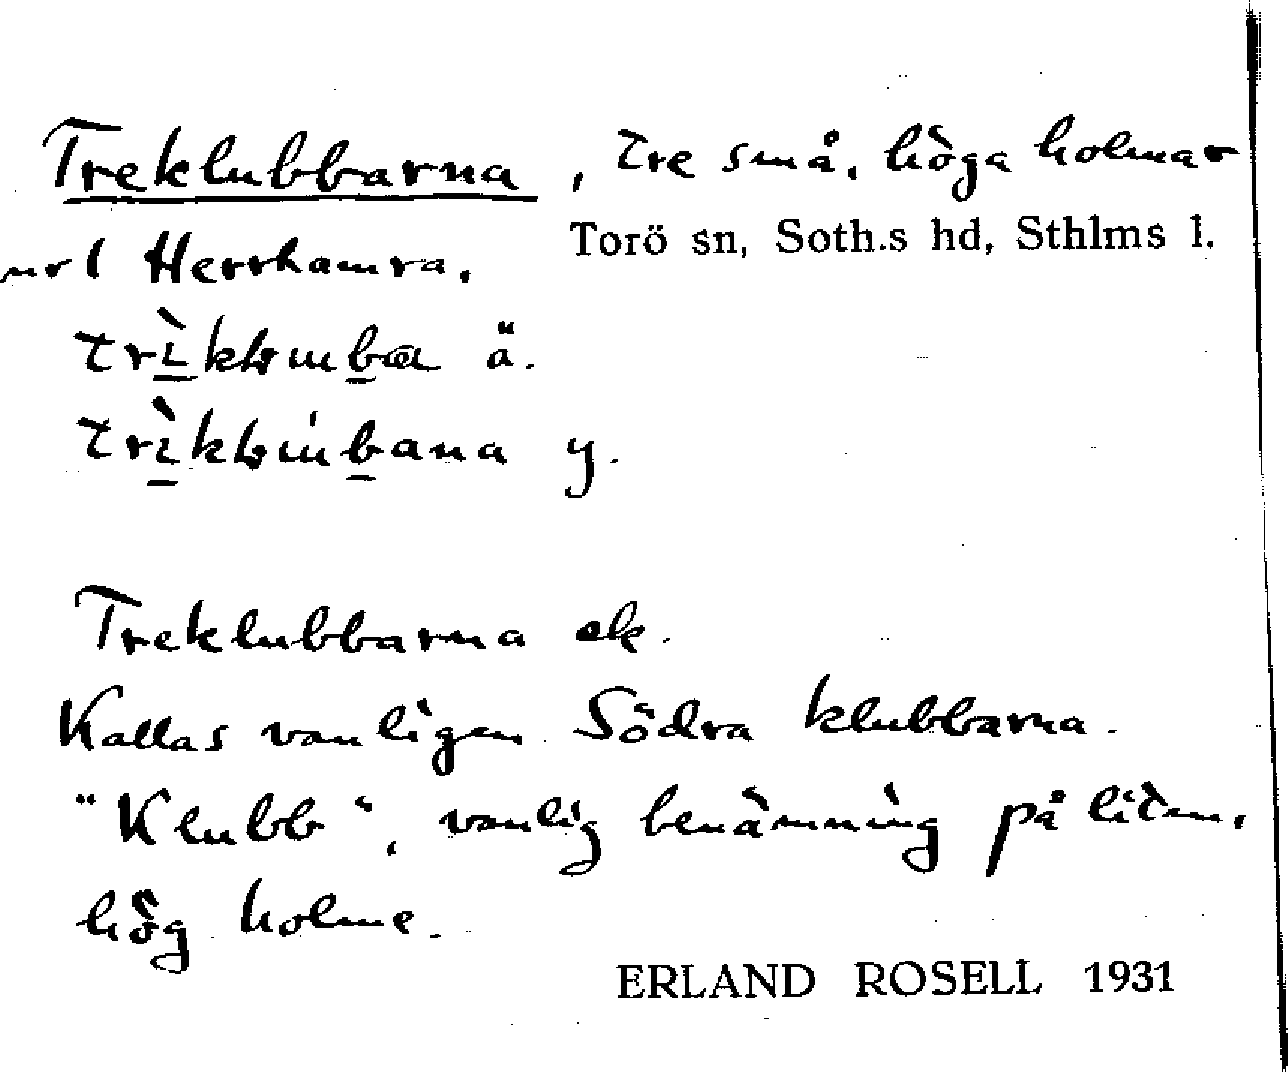 Treklubbarna, tre små, höga holmar
Torö sn, Soth.s hd, Sthlms l.
Herrhamra.
ä.
y.
Treklubbarna ek.
Kallas vanligen Södra klubbarna.
"Klubb", vanlig benämning på liten,
hög holme.
ERLAND ROSELL 1931